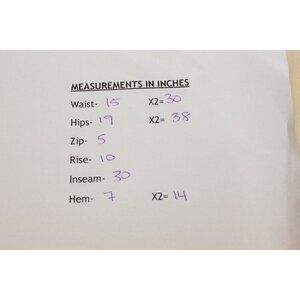 MEASUREMENTS IN INCHES
Waist- 15 X2= 30
Hips- 19 X2= 38
Zip- 5
Rise- 10
Inseam- 30
Hem- 7 X2= 14